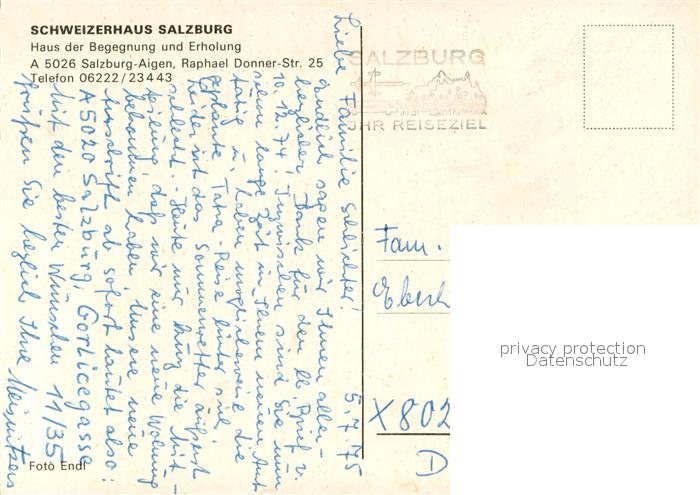 SCHWEIZERHAUS SALZBURG
Haus der Begegnung und Erholung
A 5026 Salzburg-Aigen, Raphael Donner-Str. 25
Telefon 06222/23443
SALZBURG
IHR REISEZIEL
5.7.75
Liebe Familie
Endlich sagen wir Ihnen aller-
herzlichsten Dank für den lb. Brief v.
10.12.74! Inzwischen sind Sie nun
schon lange Zeit in Ihrem neuen Amt
tätig u. haben möglicherweise die
geplante Tatra-Reise hinter sich.
Leider ist das Sommerwetter äußerst
schlecht. - Heute nur kurz die Mit-
teilung, daß wir eine neue Wohnung
bekommen haben. Unsere neue
Anschrift ab sofort lautet also:
A 5020 Salzburg, Gorlicegasse
11/35
Mit den besten Wünschen
grüßen Sie herzlich Ihre
Fam.
X802
D
Foto Endl
privacy protection
Datenschutz